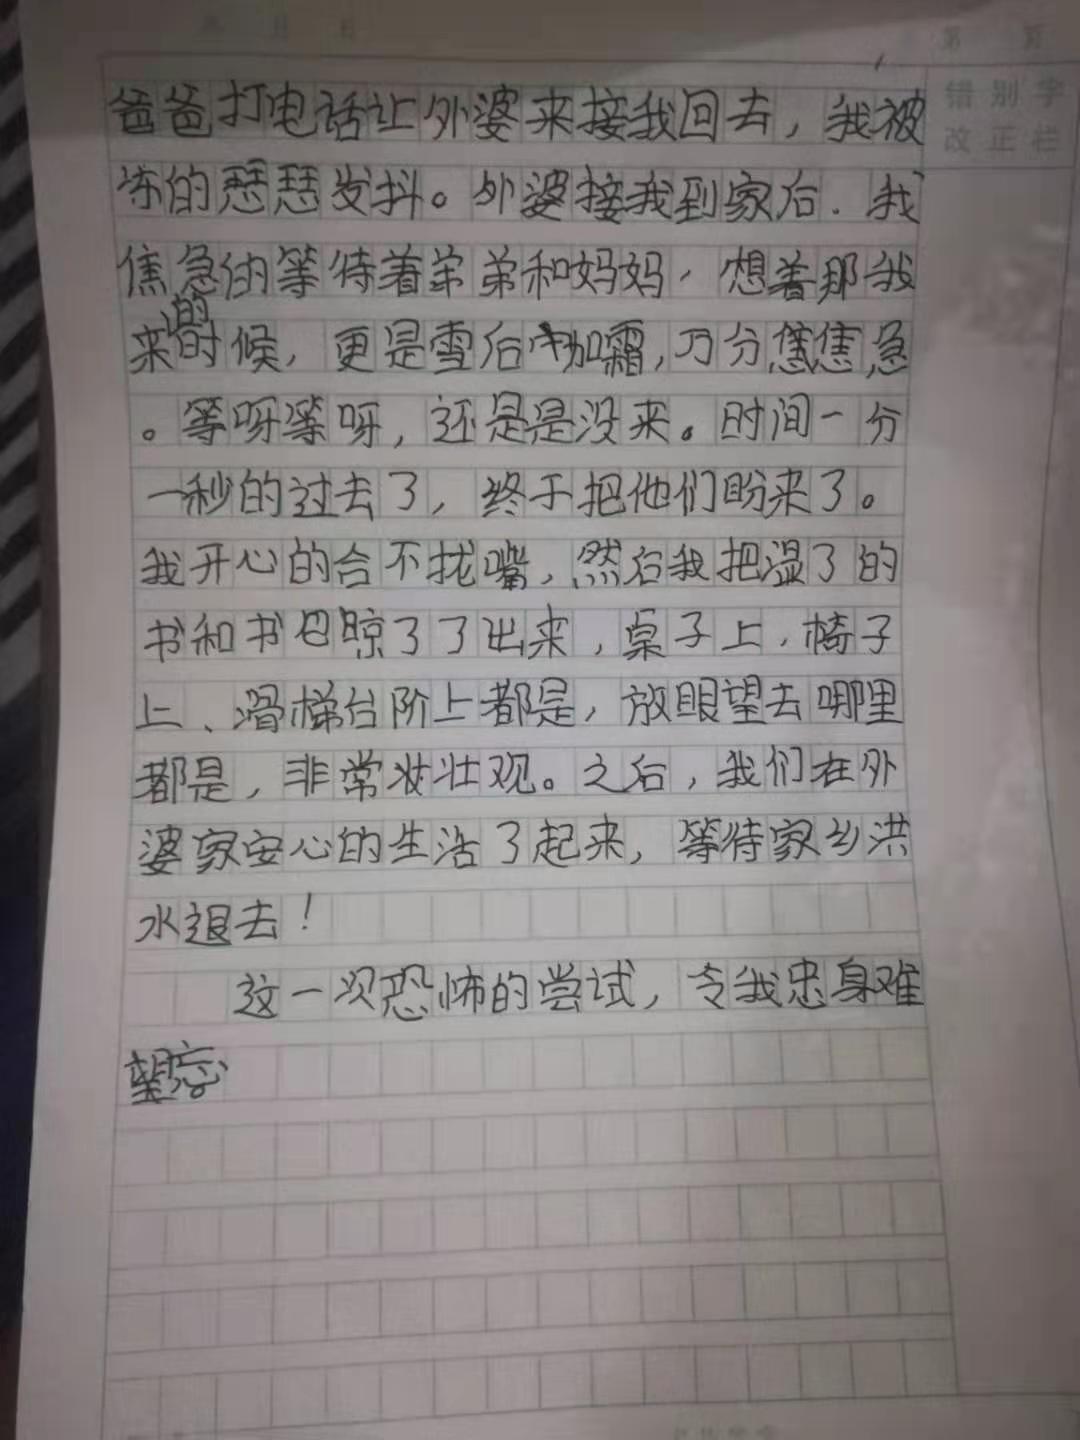 第 页
错别字
改正栏
爸爸打电话让外婆来接我回去，我被
冻的瑟瑟发抖。外婆接我到家后.我
焦急的等待着弟弟和妈妈，想着那我
来的时候，更是雪后加霜，万分焦焦急
。等呀等呀，还是是没来。时间一分
一秒的过去了，终于把他们盼来了。
我开心的合不拢嘴，然后我把湿了的
书和书包晾了了出来，桌子上，椅子
上、滑梯台阶上都是，放眼望去哪里
都是，非常壮壮观。之后，我们在外
婆家安心的生活了起来，等待家乡洪
水退去！
这一次恐怖的尝试，令我忠身难
望忘